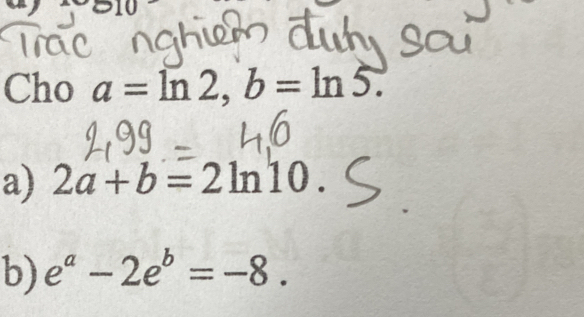 Trắc nghiệm đúng sai
Cho a = ln 2, b = ln 5.
2,99 = 4,6
a) 2a + b = 2 ln 10. S
b) eᵃ − 2eᵇ = −8.